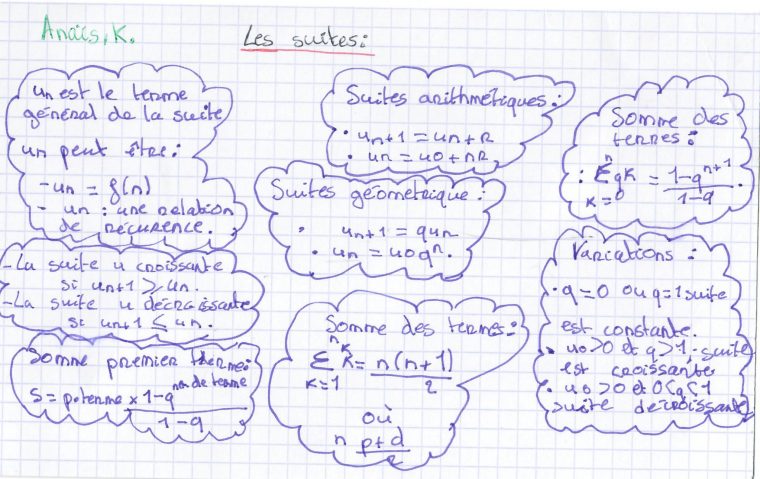 Anaïs, K.
Les suites:
un est le terme
général de la suite
un peut être:
- un = f(n)
- un : une relation
de récurence.
- La suite u croissante
si un+1 ⩾ un.
- La suite u décroissante
si un+1 ≤ un.
Somme premier therme:
S = p.terme × 1-q^nbr de terme
1-q
Suites arithmétiques:
• un+1 = un+R
• un = u0+nR
Suites géometrique:
• un+1 = qun
• un = u0q^n.
Somme des termes:
n
Σ k = n(n+1)
K=1 2
où
n p+d
2
Somme des
termes:
n
: Σ qK = 1-q^n+1
K=0 1-q
Variations:
• q=0 ou q=1 suite
est constante.
• u0>0 et q>1, suite
est croissante
• u0>0 et 0<q<1
suite décroissante